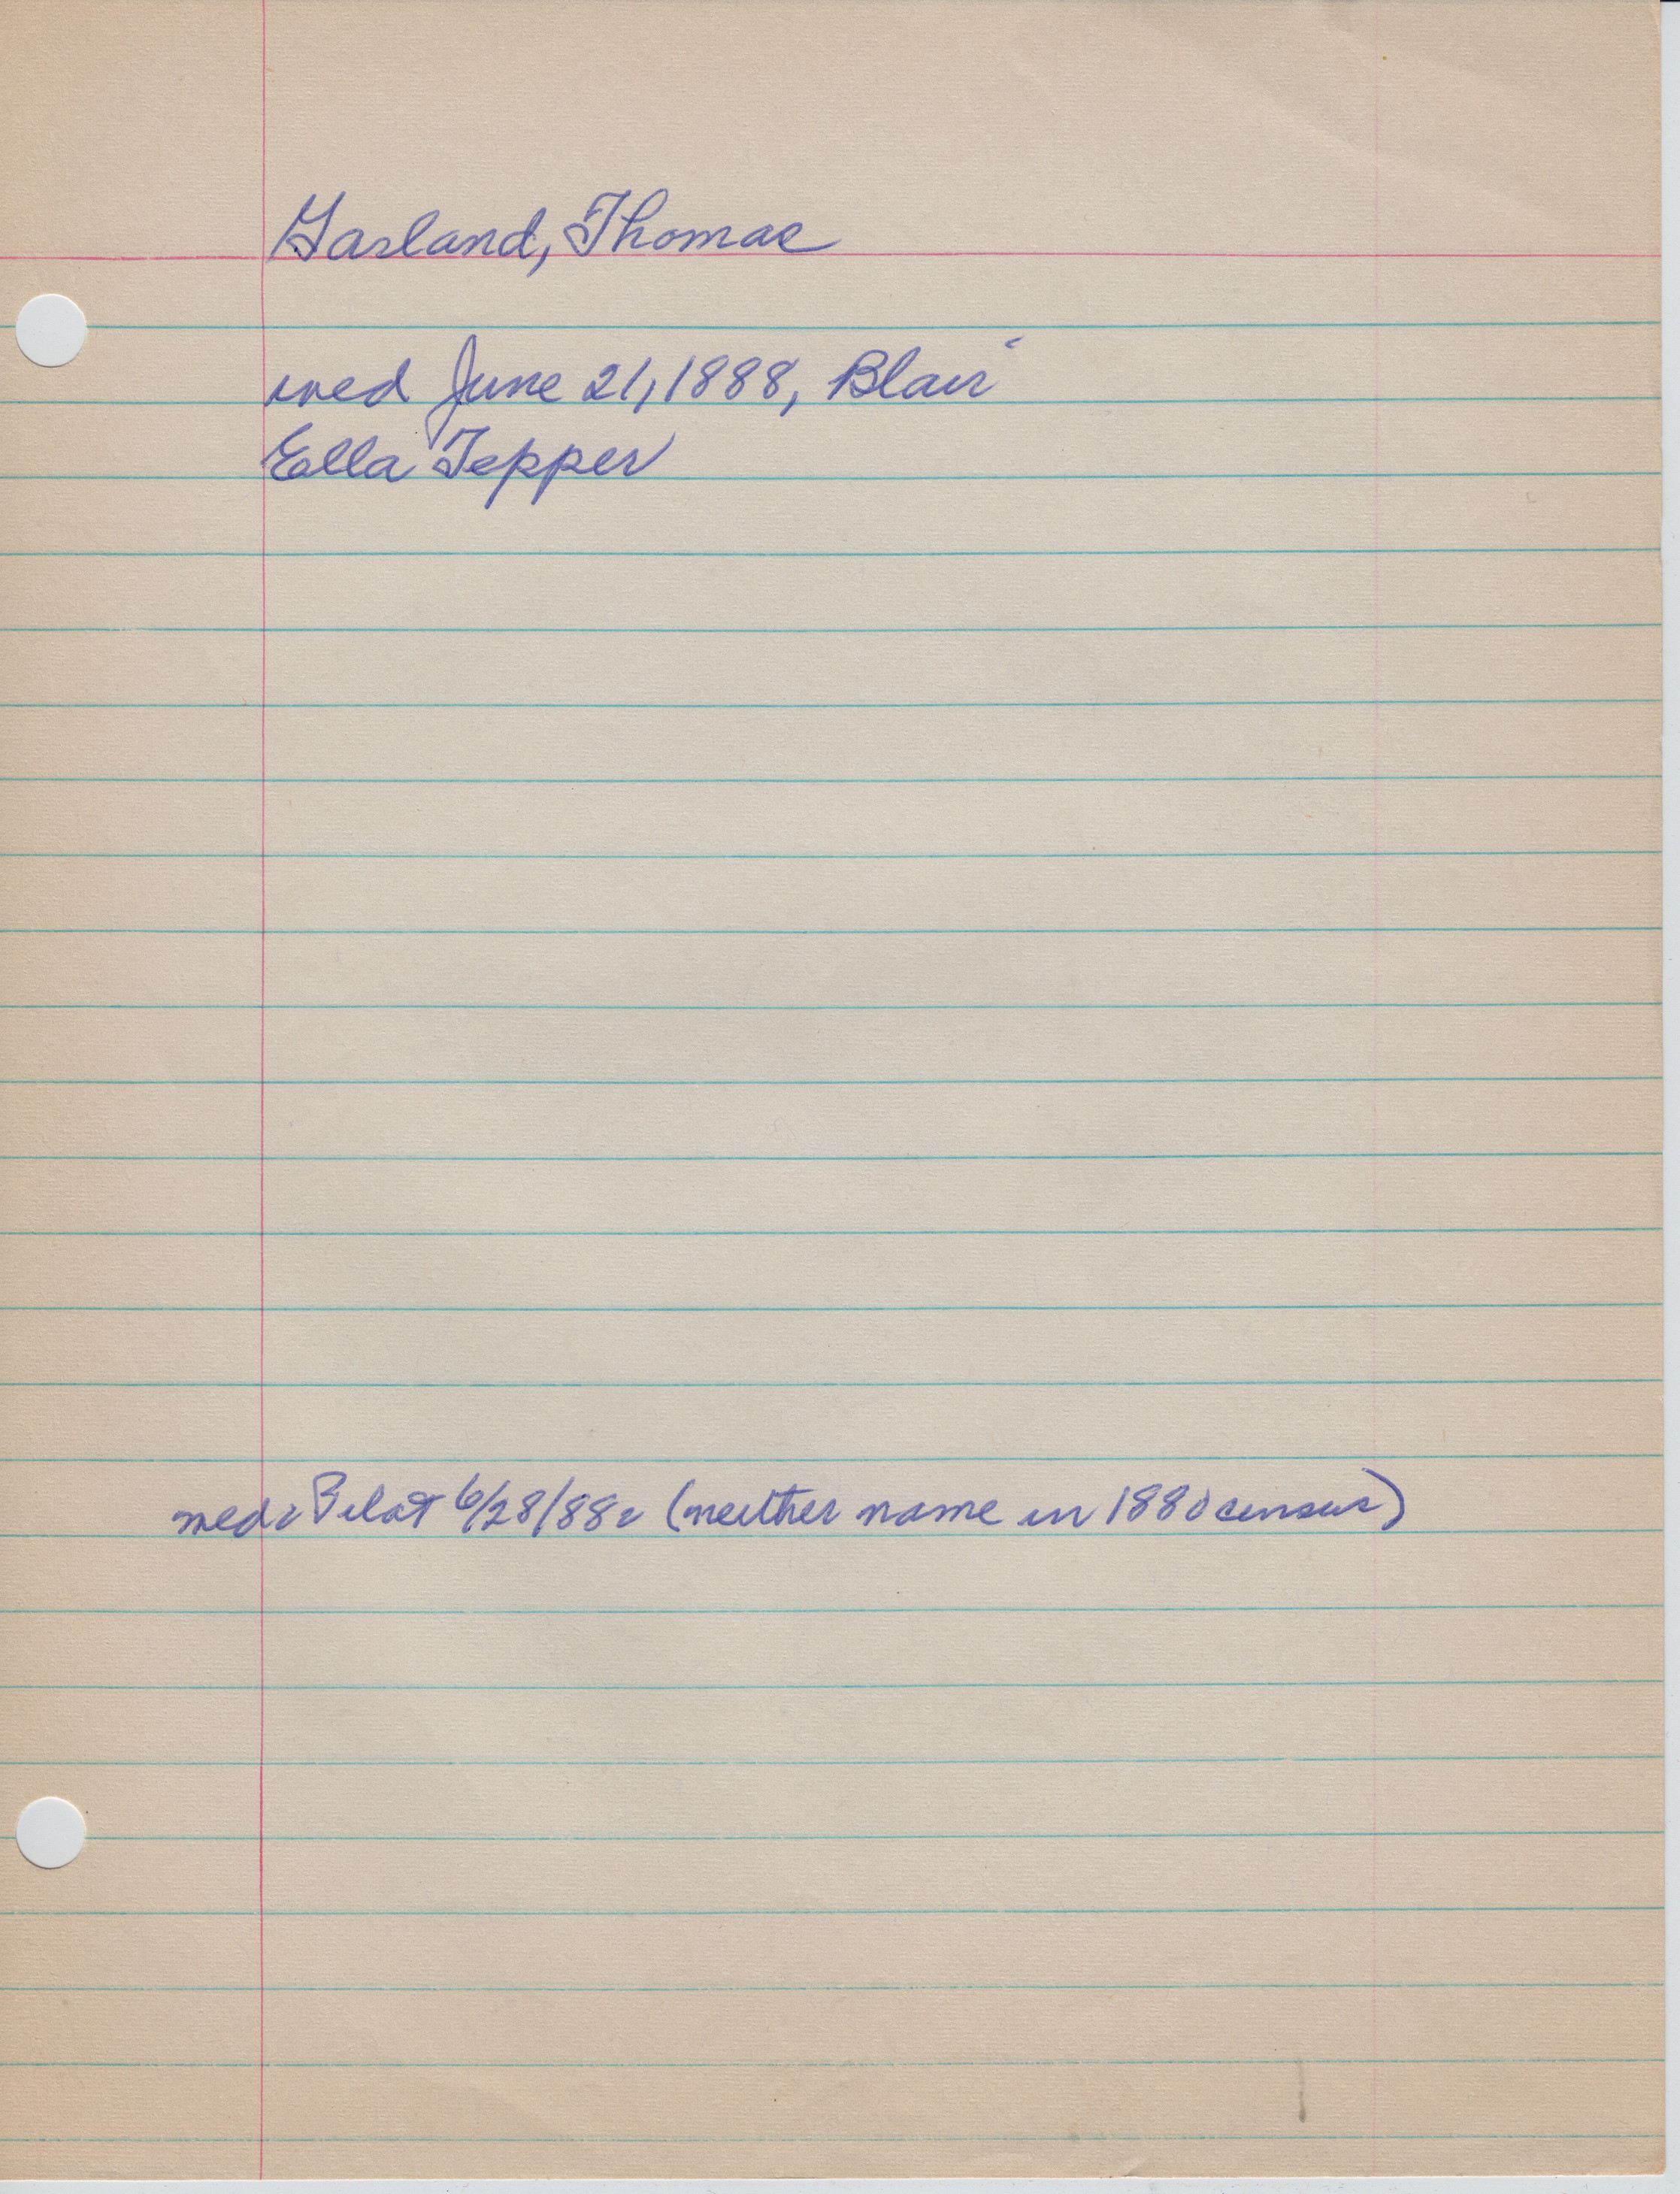 Garland, Thomas
wed June 21, 1888, Blair
Ella Tepper
6/28/88. (neither name in 1880 census)